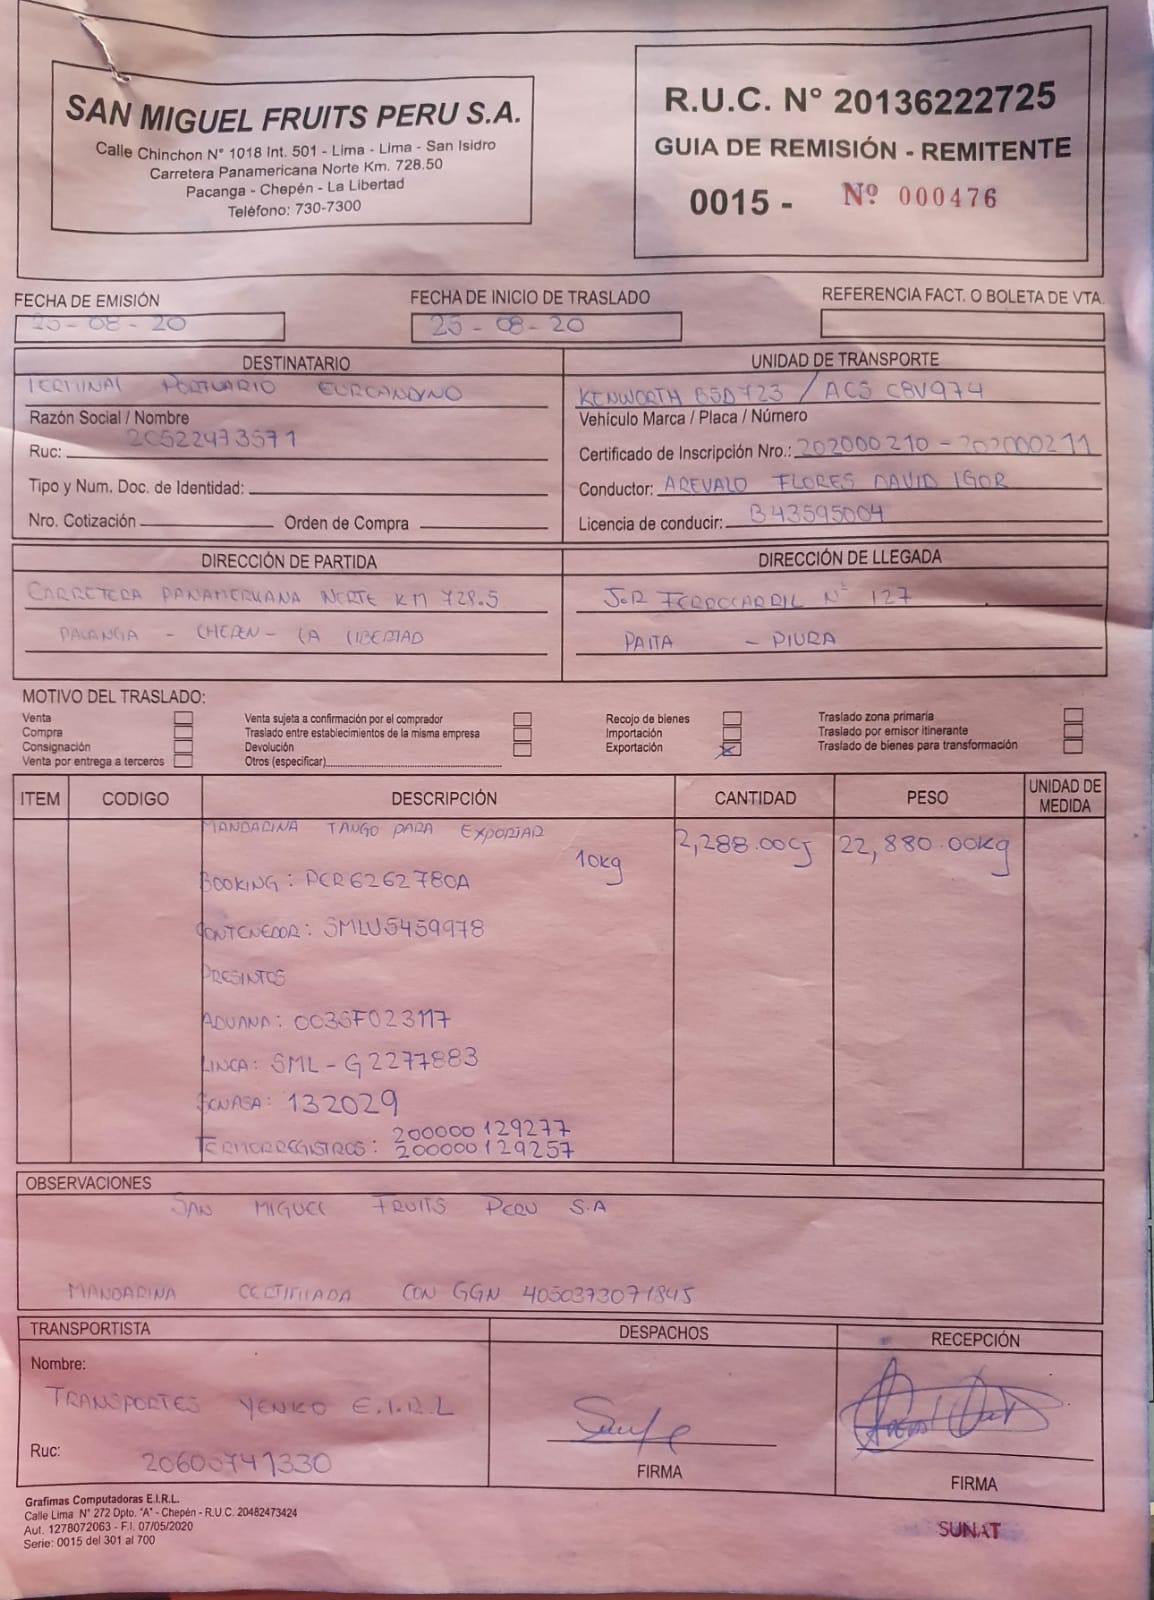 SAN MIGUEL FRUITS PERU S.A.
Calle Chinchon N° 1018 Int. 501 - Lima - Lima - San Isidro
Carretera Panamericana Norte Km. 728.50
Pacanga - Chepén - La Libertad
Teléfono: 730-7300
R.U.C. N° 20136222725
GUIA DE REMISIÓN - REMITENTE
0015 - Nº 000476
FECHA DE EMISIÓN
25-08-20
FECHA DE INICIO DE TRASLADO
25-08-20
REFERENCIA FACT. O BOLETA DE VTA.
DESTINATARIO
TERMINAL PORTUARIO EUROANDINO
Razón Social / Nombre
Ruc: 20522473571
Tipo y Num. Doc. de Identidad:
Nro. Cotización Orden de Compra
UNIDAD DE TRANSPORTE
KENWORTH B5D723 / ACS C8V974
Vehículo Marca / Placa / Número
Certificado de Inscripción Nro.: 202000210 - 202000211
Conductor: AREVALO FLORES DAVID IGOR
Licencia de conducir: B43595004
DIRECCIÓN DE PARTIDA
CARRETERA PANAMERICANA NORTE KM 728.5
PACANGA - CHEPEN - LA LIBERTAD
DIRECCIÓN DE LLEGADA
JR FERROCARRIL Nº 127
PAITA - PIURA
MOTIVO DEL TRASLADO:
Venta
Compra
Consignación
Venta por entrega a terceros
Venta sujeta a confirmación por el comprador
Traslado entre establecimientos de la misma empresa
Devolución
Otros (especificar)
Recojo de bienes
Importación
Exportación X
Traslado zona primaria
Traslado por emisor itinerante
Traslado de bienes para transformación
ITEM CODIGO DESCRIPCIÓN CANTIDAD PESO UNIDAD DE MEDIDA
MANDARINA TANGO PARA EXPORTAR
10kg 2,288.00CJ 22,880.00kg
BOOKING: PCR6262780A
CONTENEDOR: SMLU5459978
PRESINTOS
ADUANA: 003SF023117
LINEA: SML-G2277883
SENASA: 132029
TERMORREGISTROS: 200000129277
200000129257
OBSERVACIONES
SAN MIGUEL FRUITS PERU S.A
MANDARINA CERTIFICADA CON GGN 4050373071845
TRANSPORTISTA
Nombre:
TRANSPORTES YENKO E.I.R.L
Ruc: 20600741330
DESPACHOS
FIRMA
RECEPCIÓN
FIRMA
Grafimas Computadoras E.I.R.L.
Calle Lima N° 272 Dpto. "A" - Chepén - R.U.C. 20482473424
Aut. 1278072063 - F.I. 07/05/2020
Serie: 0015 del 301 al 700
SUNAT